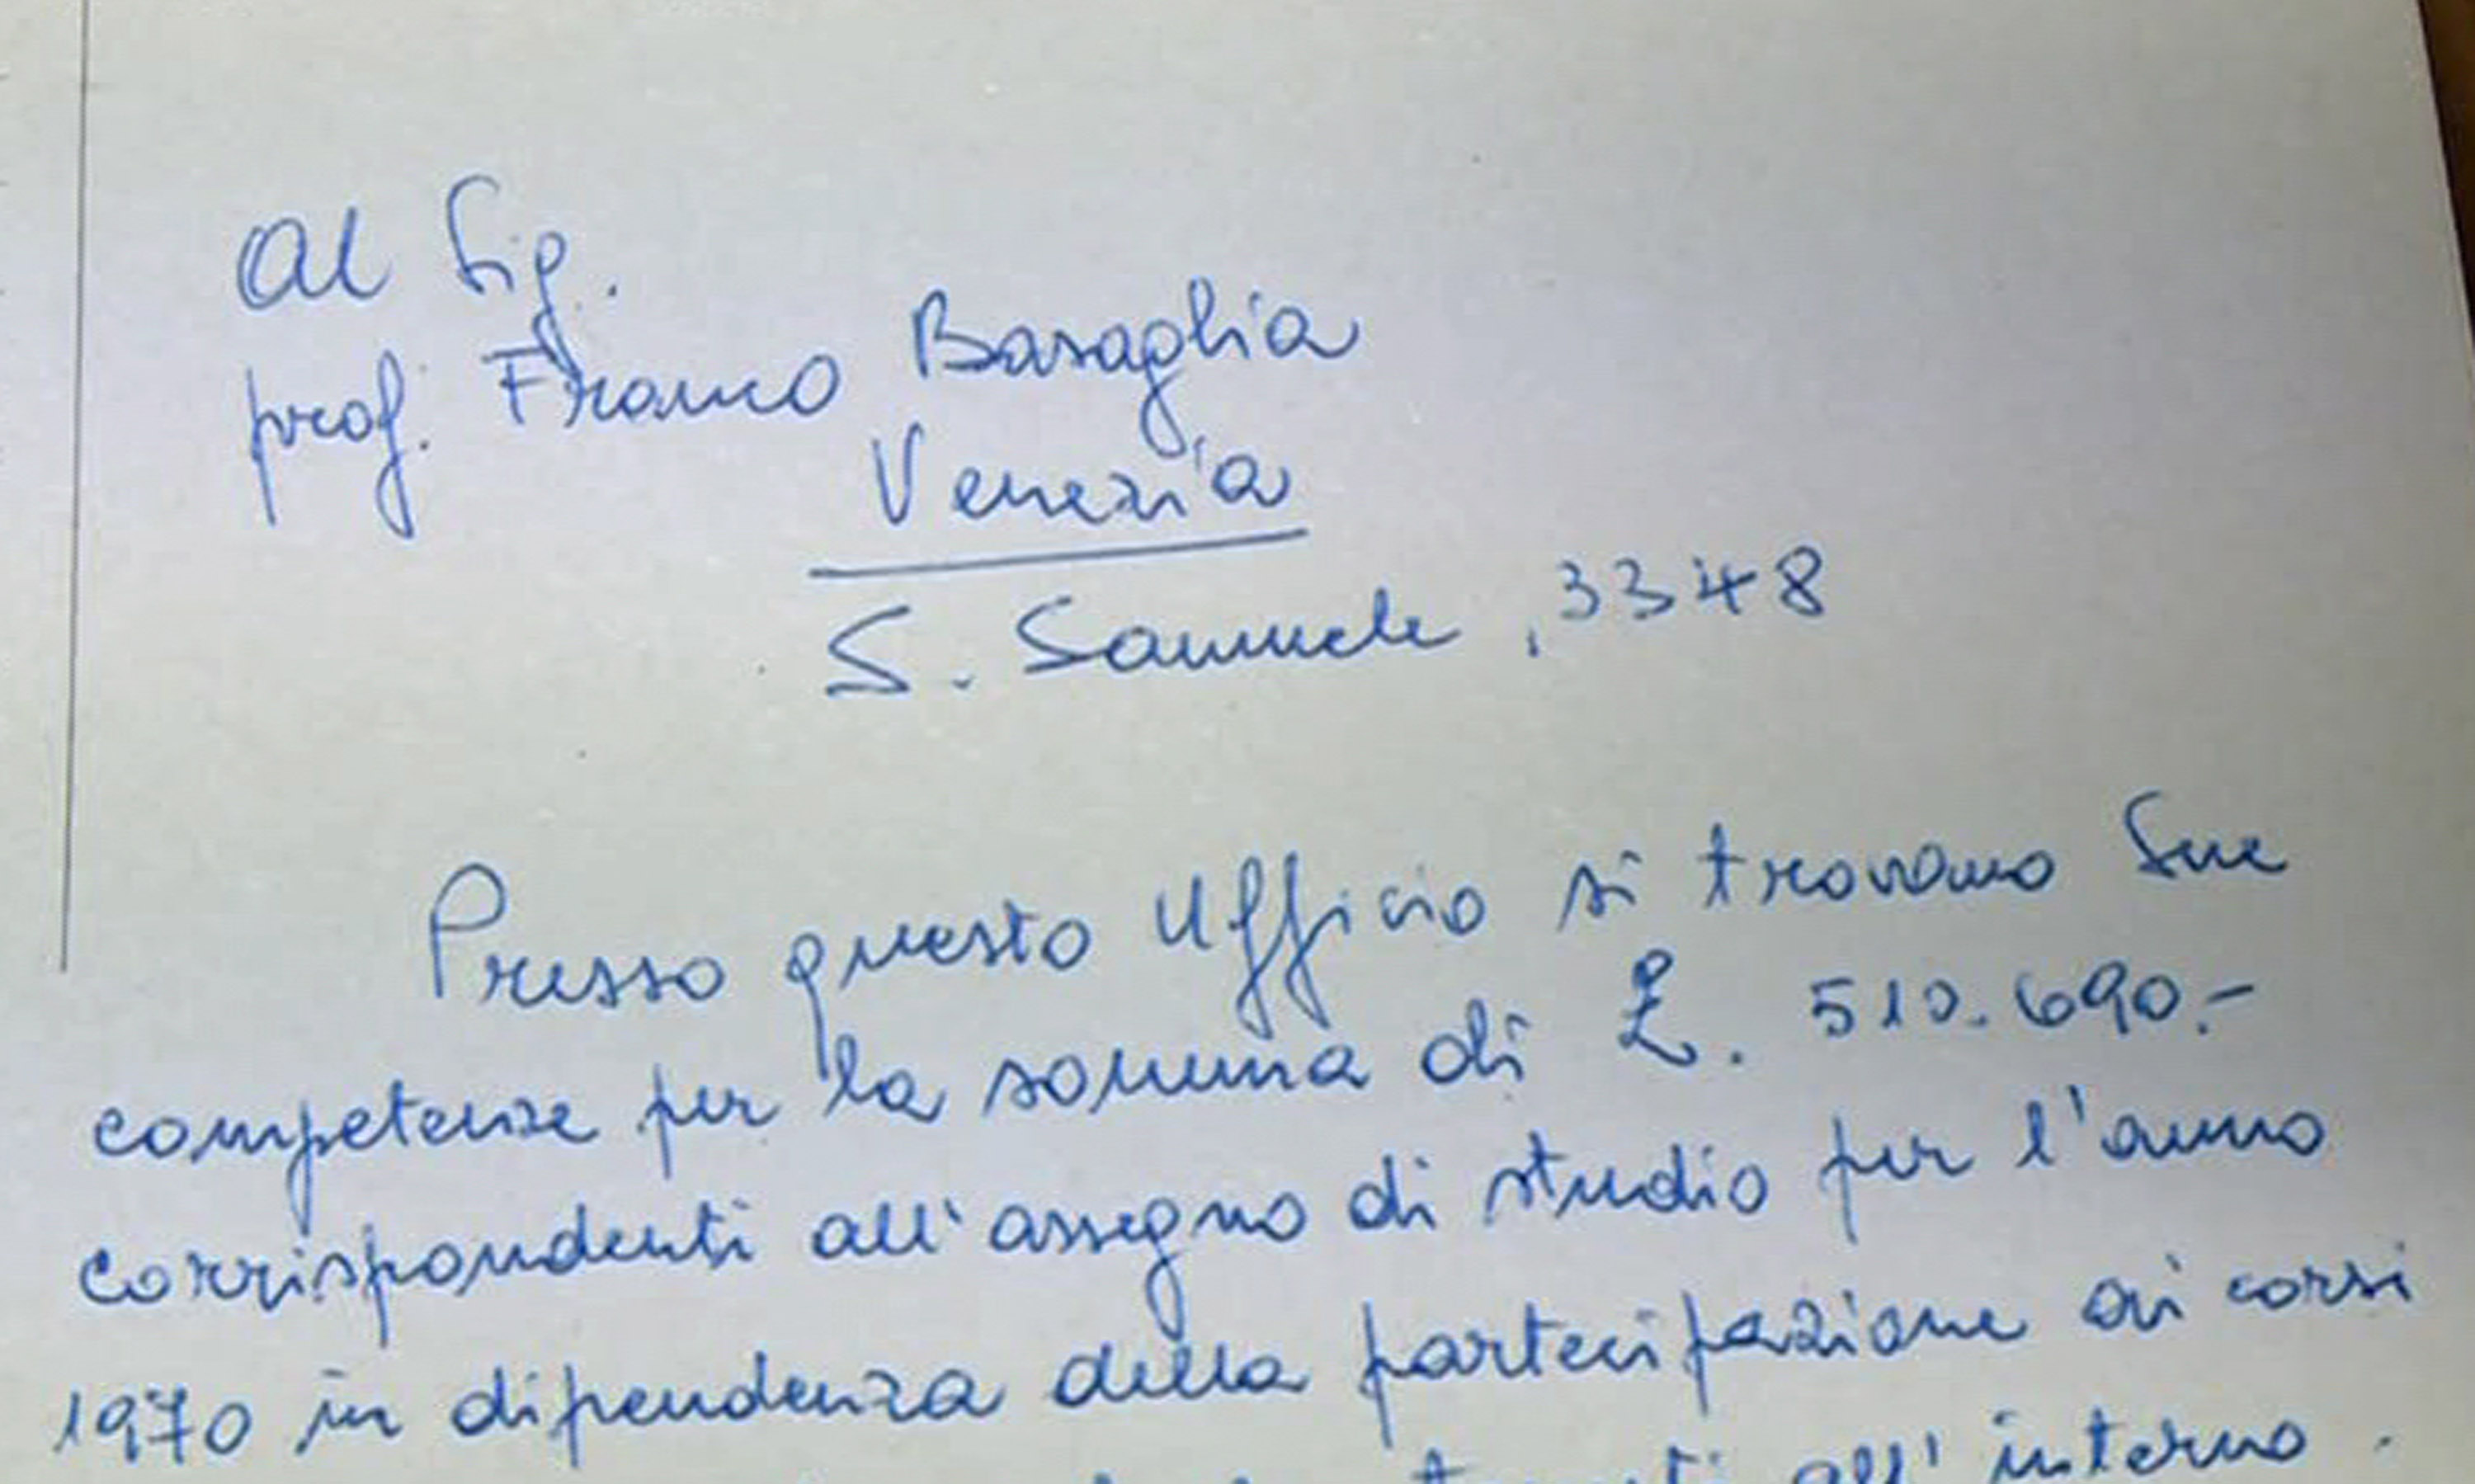 Al Sig.
prof. Franco Basaglia
Venezia
S. Samuele, 3348
Presso questo Ufficio si trovano Sue
competenze per la somma di £. 510.690.-
corrispondenti all'assegno di studio per l'anno
1970 in dipendenza della partecipazione ai corsi
all'interno.